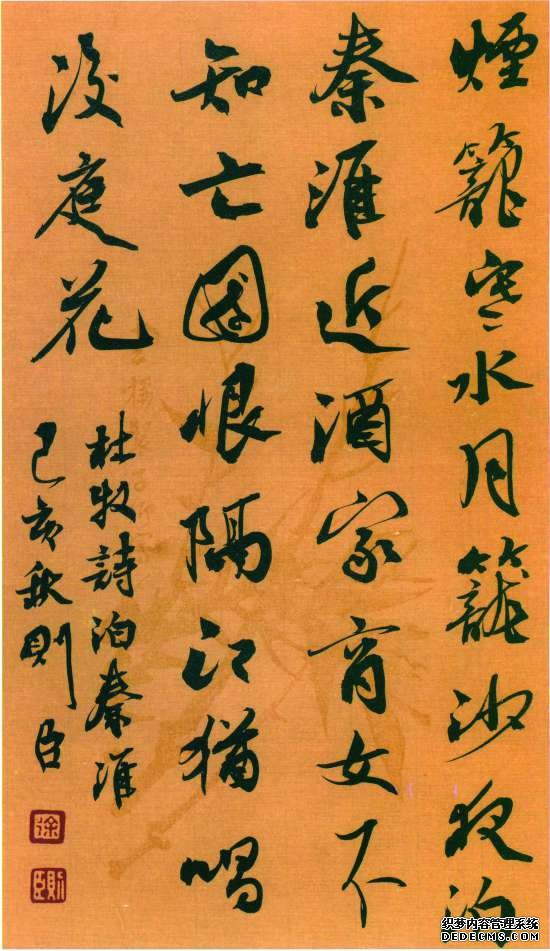 煙籠寒水月籠沙夜泊
秦淮近酒家商女不
知亡國恨隔江猶唱
後庭花
杜牧詩泊秦淮
己亥秋則臣
徐
則臣
织梦内容管理系统
DEDECMS.COM